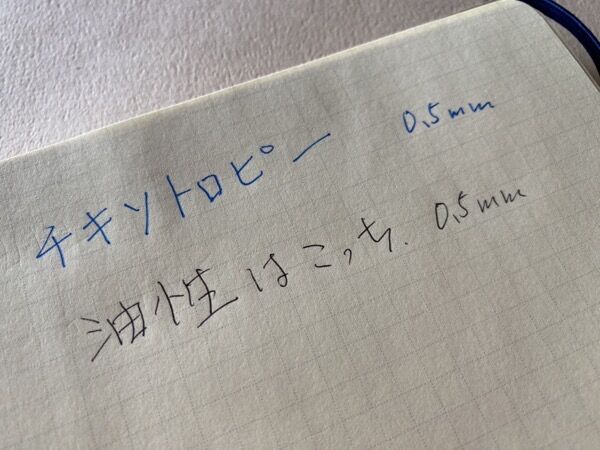 チキソトロピー 0.5mm
油性はこっち. 0.5mm